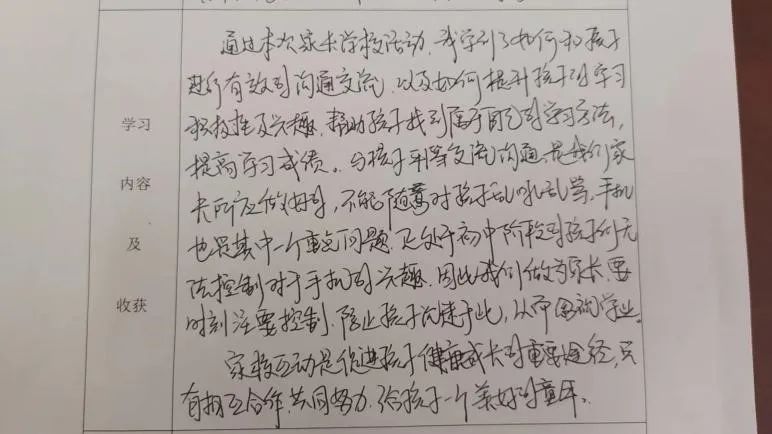 学习
内容
及
收获
通过本次家长学校活动，我学到了如何和孩子
进行有效的沟通交流，以及如何提升孩子的学习
积极性及兴趣，帮助孩子找到属于自己的学习方法，
提高学习成绩。与孩子平等交流沟通，是我们家
长所应做好的，不能随意对孩子乱吼乱骂，手机
也是其中一个重点问题，正处于初中阶段的孩子们无
法控制对于手机的兴趣，因此我们做为家长，要
时刻注意控制，阻止孩子沉迷于此，从而学业。
家校互动是促进孩子健康成长的重要途径，只
有相互合作，共同努力，给孩子一个美好的童年。